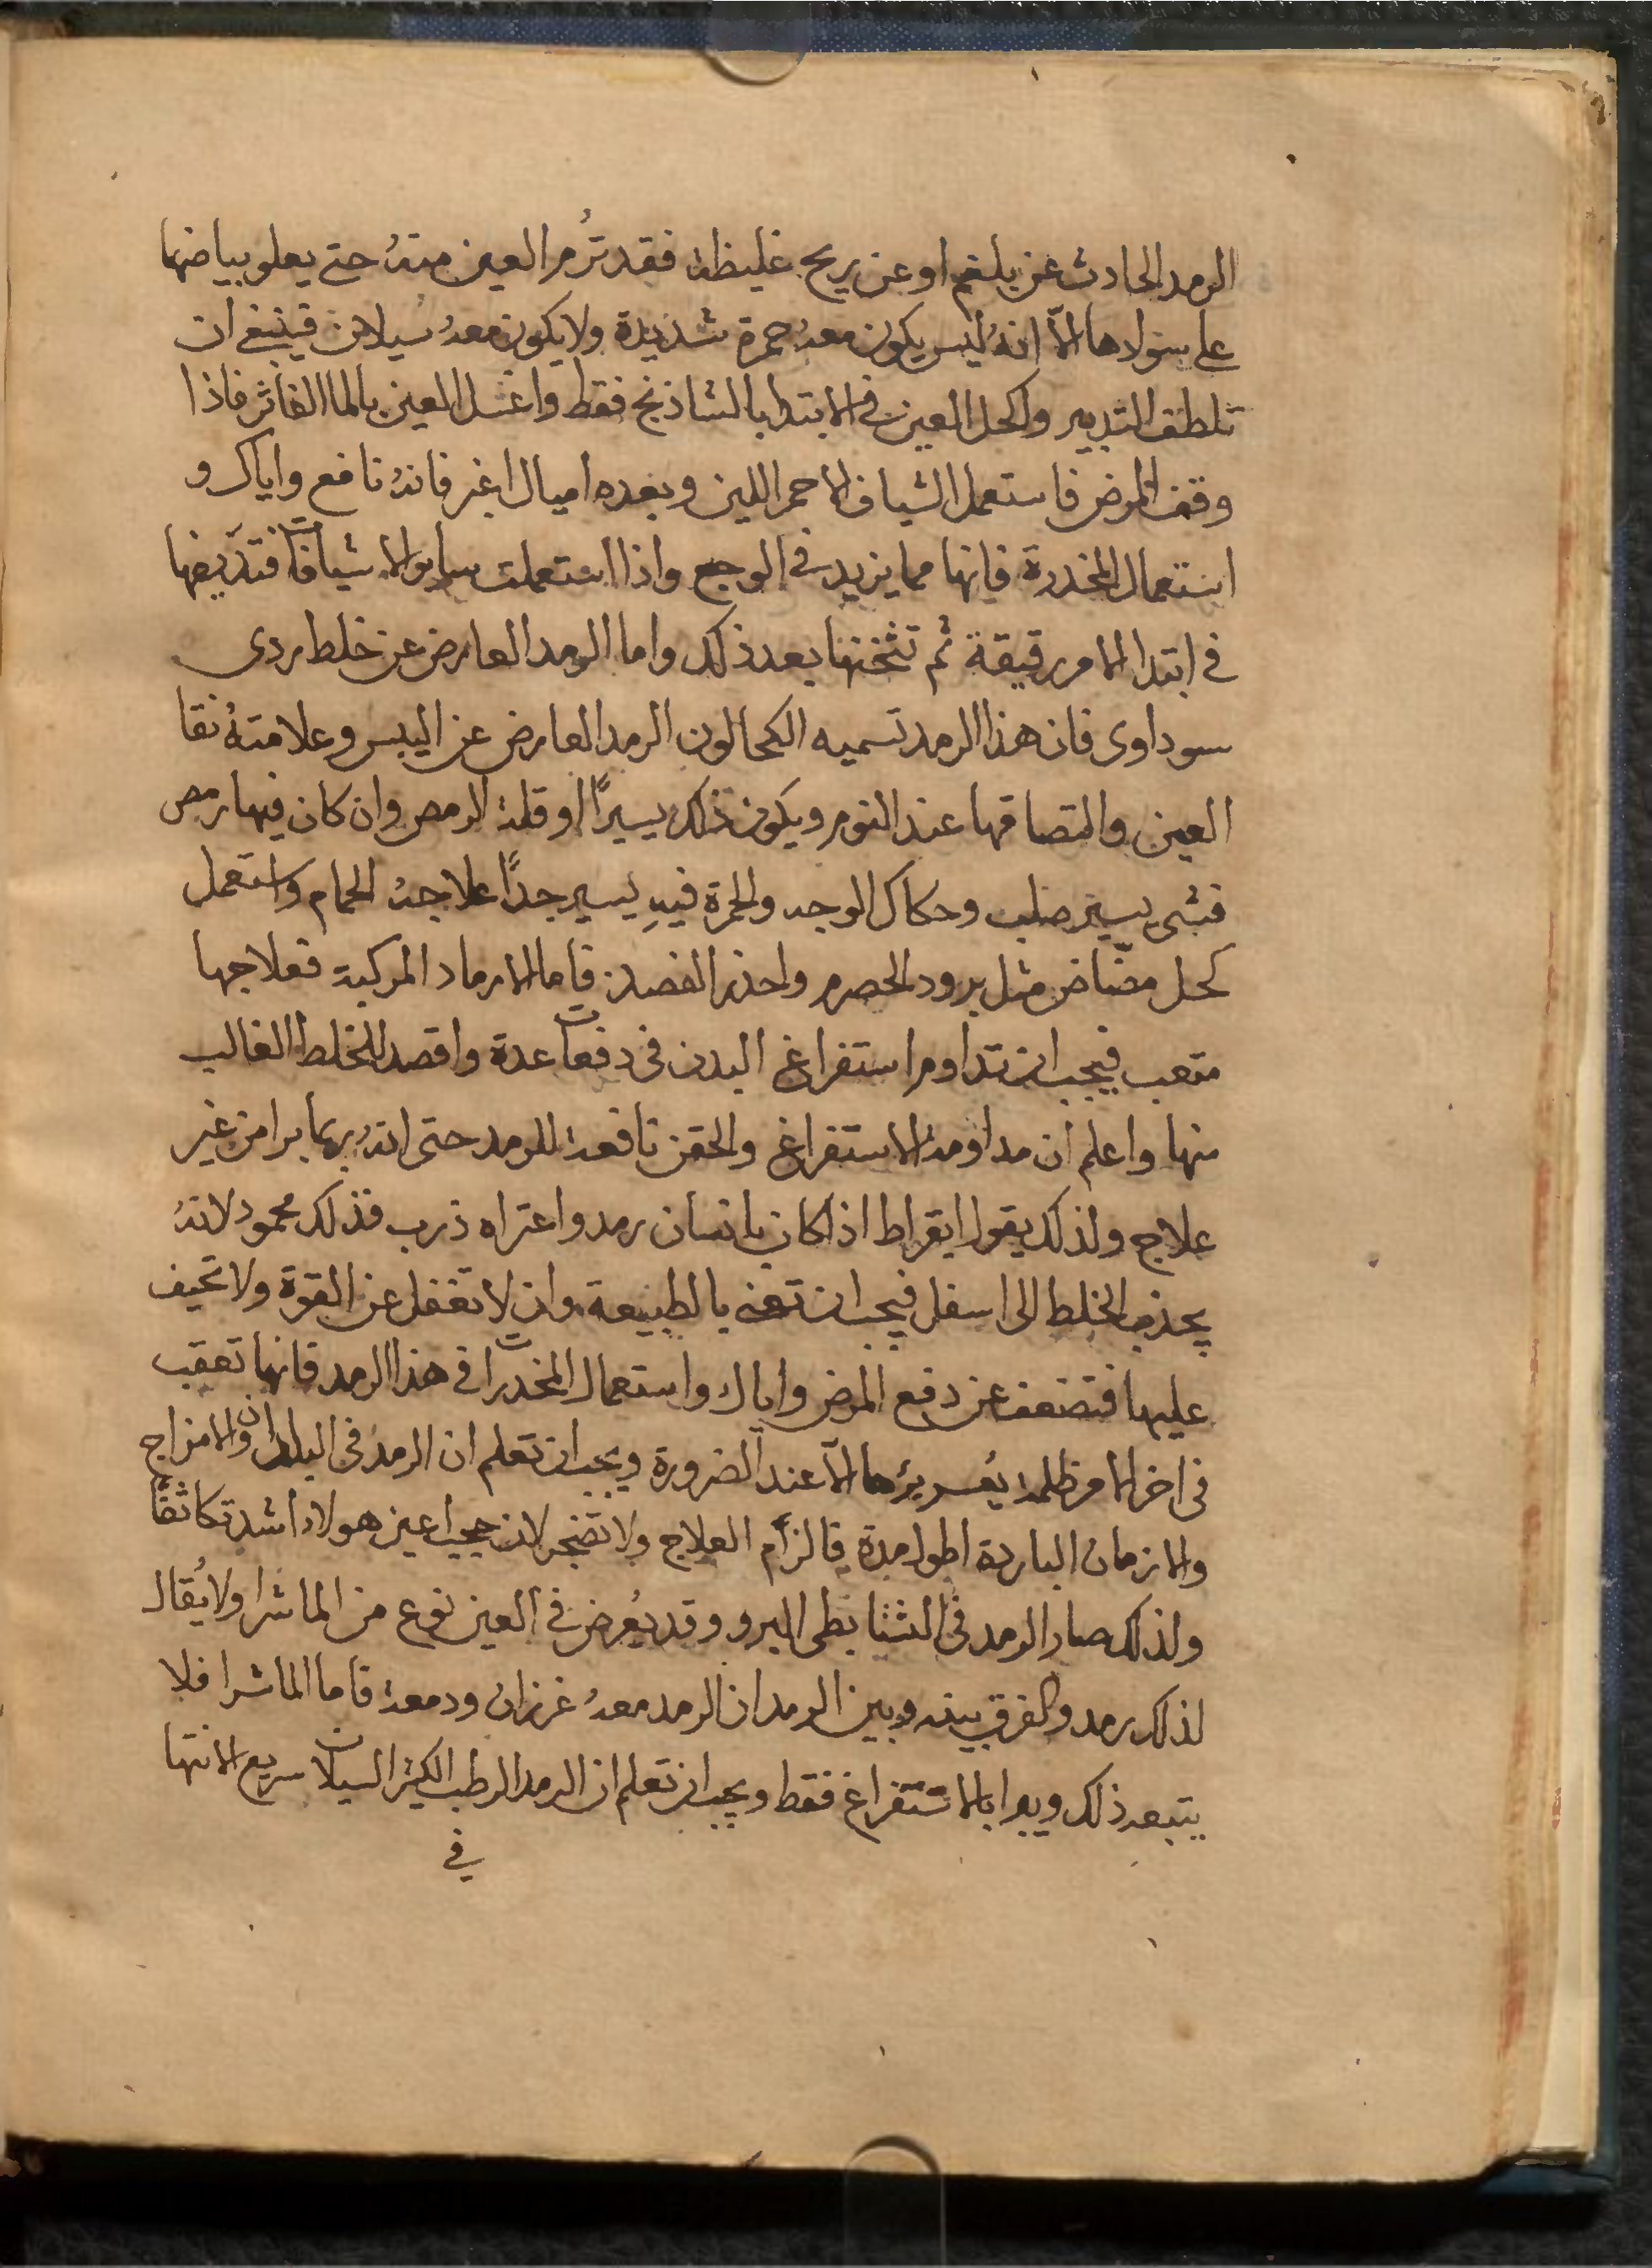 الرمد الحادث عن بلغم او عن ريح غليظة فقد ترُم العين منهُ حتى يعلو بياضها
على سوادها الاّ انهُ ليس يكون معهُ حمرة شديدة ولا يكون معهُ سيلان فينبغى ان
تلطف التدبير واكحل العين فى الابتدا بالشاذنج فقط واغسل العين بالما الفاتر فاذا
وقف المرض فاستعمل الشياف الاحمر اللين وبعده اميال اغبر فانهُ نافع واياك و
استعمال المخدرة فانها مما يزيد فى الوجع واذا استعملت ساير الاشيافات فتدّيفها
فى ابتدا الامر رقيقة ثم تثخنها بعد ذلك واما الرمد العارض عن خلط ردى
سوداوى فان هذا الرمد تسميه الكحالون الرمد العارض عن اليبس وعلامتهُ نقا
العين والتصاقها عند النوم ويكون ذلك يسيرًا او قلة الرمص وان كان فيها رمص
فشى يسير صلب وحكاك الوجه والحمرة فيهِ يسير جدًا علاجهُ الحمام واستعمل
كحل مضّاض مثل برود الحصرم واحذر الفصد فاما الارماد المركبة فعلاجها
متعب فيجب ان تداوم استفراغ البدن فى دفعات عدة واقصد للخلط الغالب
منها واعلم ان مداومة الاستفراغ والحقن نافعة للرمد حتى انهُ ربما برا من غير
علاج ولذلك يقول ابقراط اذا كان بانسان رمد واعتراه ذرب فذلك محمود لانهُ
يجذب الخلط الى اسفل فيجب ان تعنى بالطبيعة وان لا تغفل عن القوة ولا تحيف
عليها فتضعف عن دفع المرض واياك واستعمال المخدرات فى هذا الرمد فانها تعقب
فى اخر الامر ظلمة يُعسر برُها الاّ عند الضرورة ويجب ان تعلم ان الرمد فى البلدان والامزاج
والازمان الباردة اطول مدة فالزم العلاج ولا تضجر لان حجب اعين هولاء اشد تكاثفًا
ولذلك صار الرمد فى الشتا بطى البرو وقد يُعرض فى العين نوع من الماشرا ولا يُقال
لذلك رمد والفرق بينه وبين الرمد ان الرمد معهُ غرزان ودمعة فاما الماشرا فلا
يتبعه ذلك ويبرا بالاستفراغ فقط ويجب ان تعلم ان الرمد الرطب الكثير السيلان سريع الانتها
فى